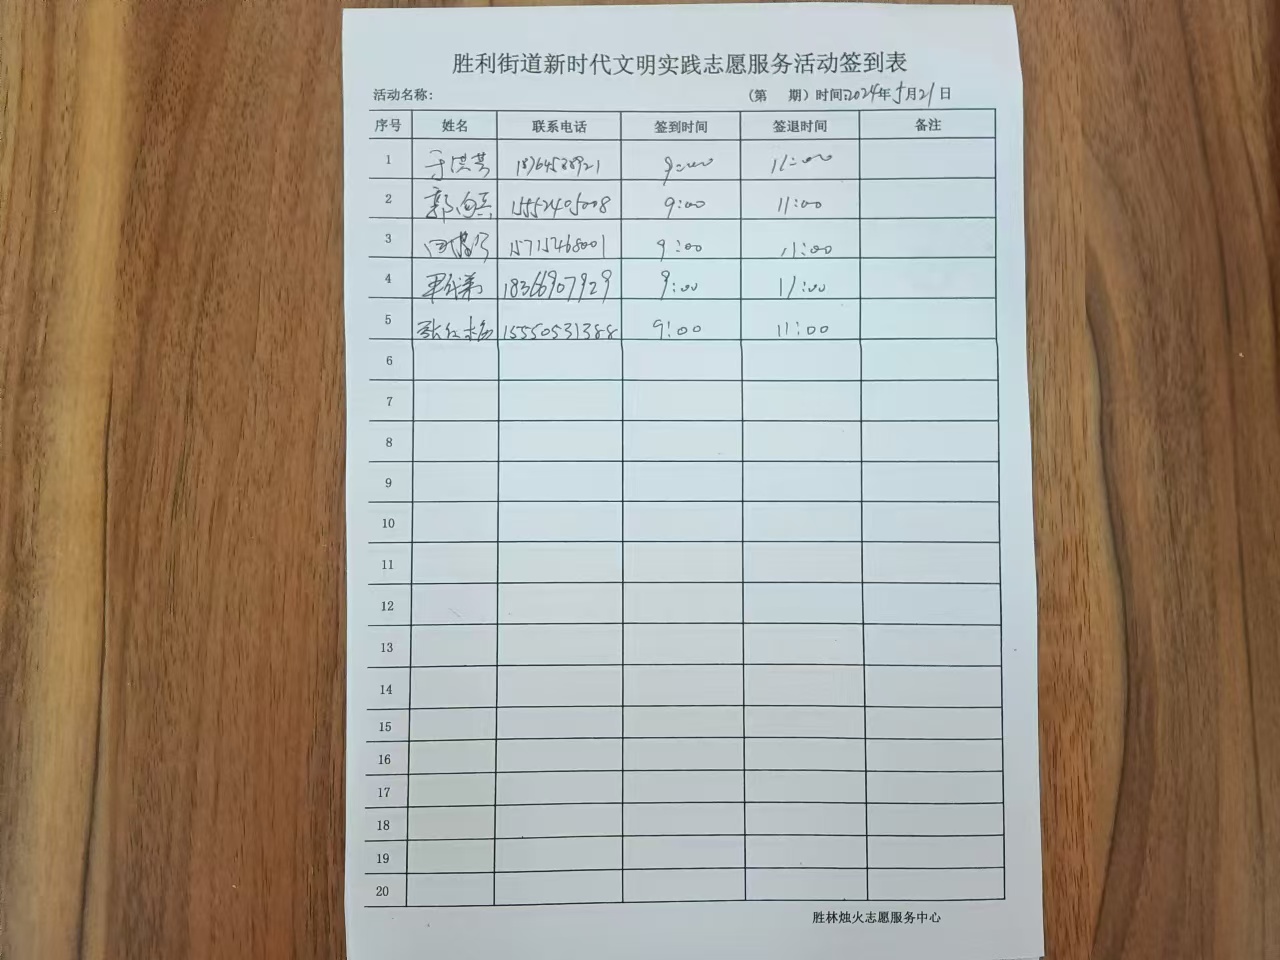 胜利街道新时代文明实践志愿服务活动签到表
活动名称: (第 期) 时间:2024年5月21日
序号 姓名 联系电话 签到时间 签退时间 备注
1 于洪芬 18764538921 9:00 11:00
2 郭向兵 15552405008 9:00 11:00
3 15715468001 9:00 11:00
4 18366907929 9:00 11:00
5 张红梅 15550531388 9:00 11:00
6
7
8
9
10
11
12
13
14
15
16
17
18
19
20
胜林烛火志愿服务中心